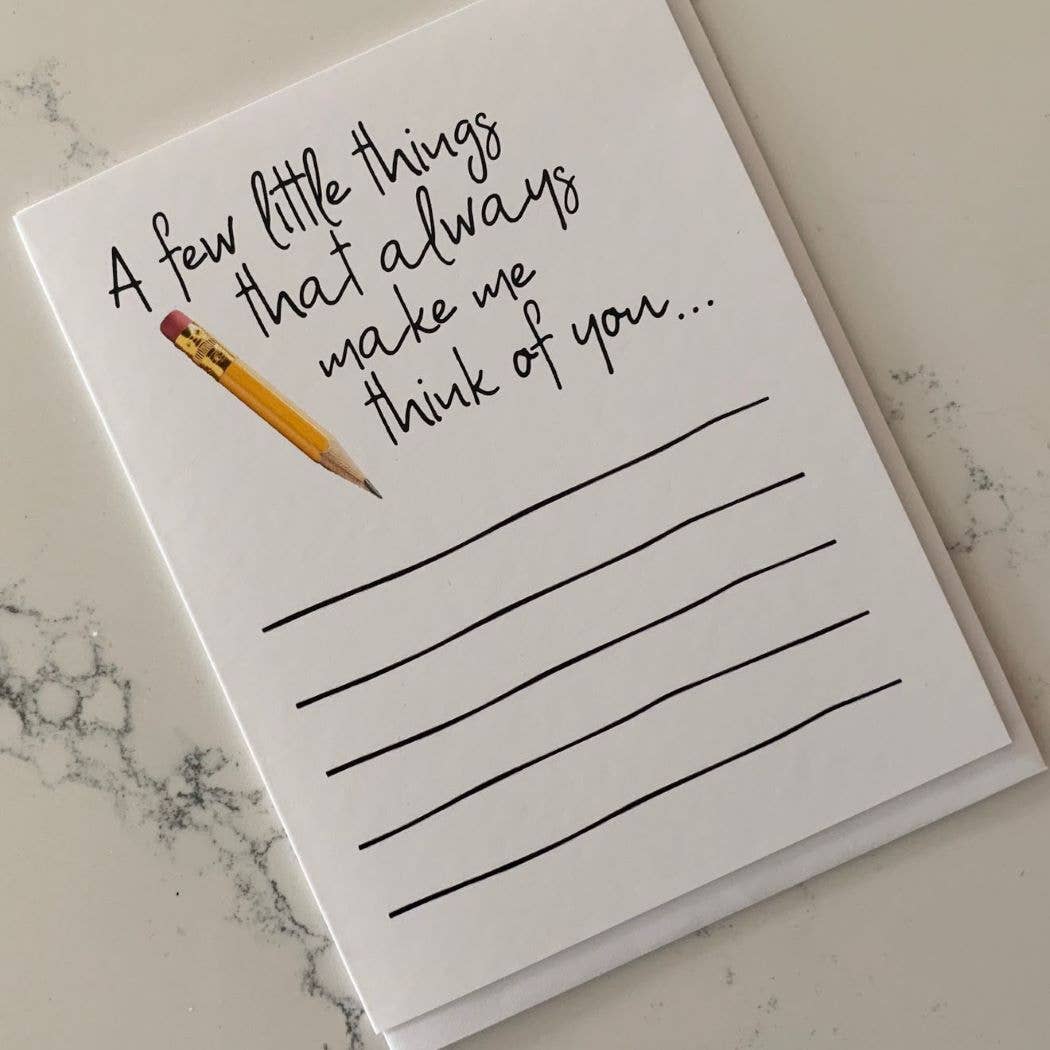 A few little things
that always
make me
think of you...